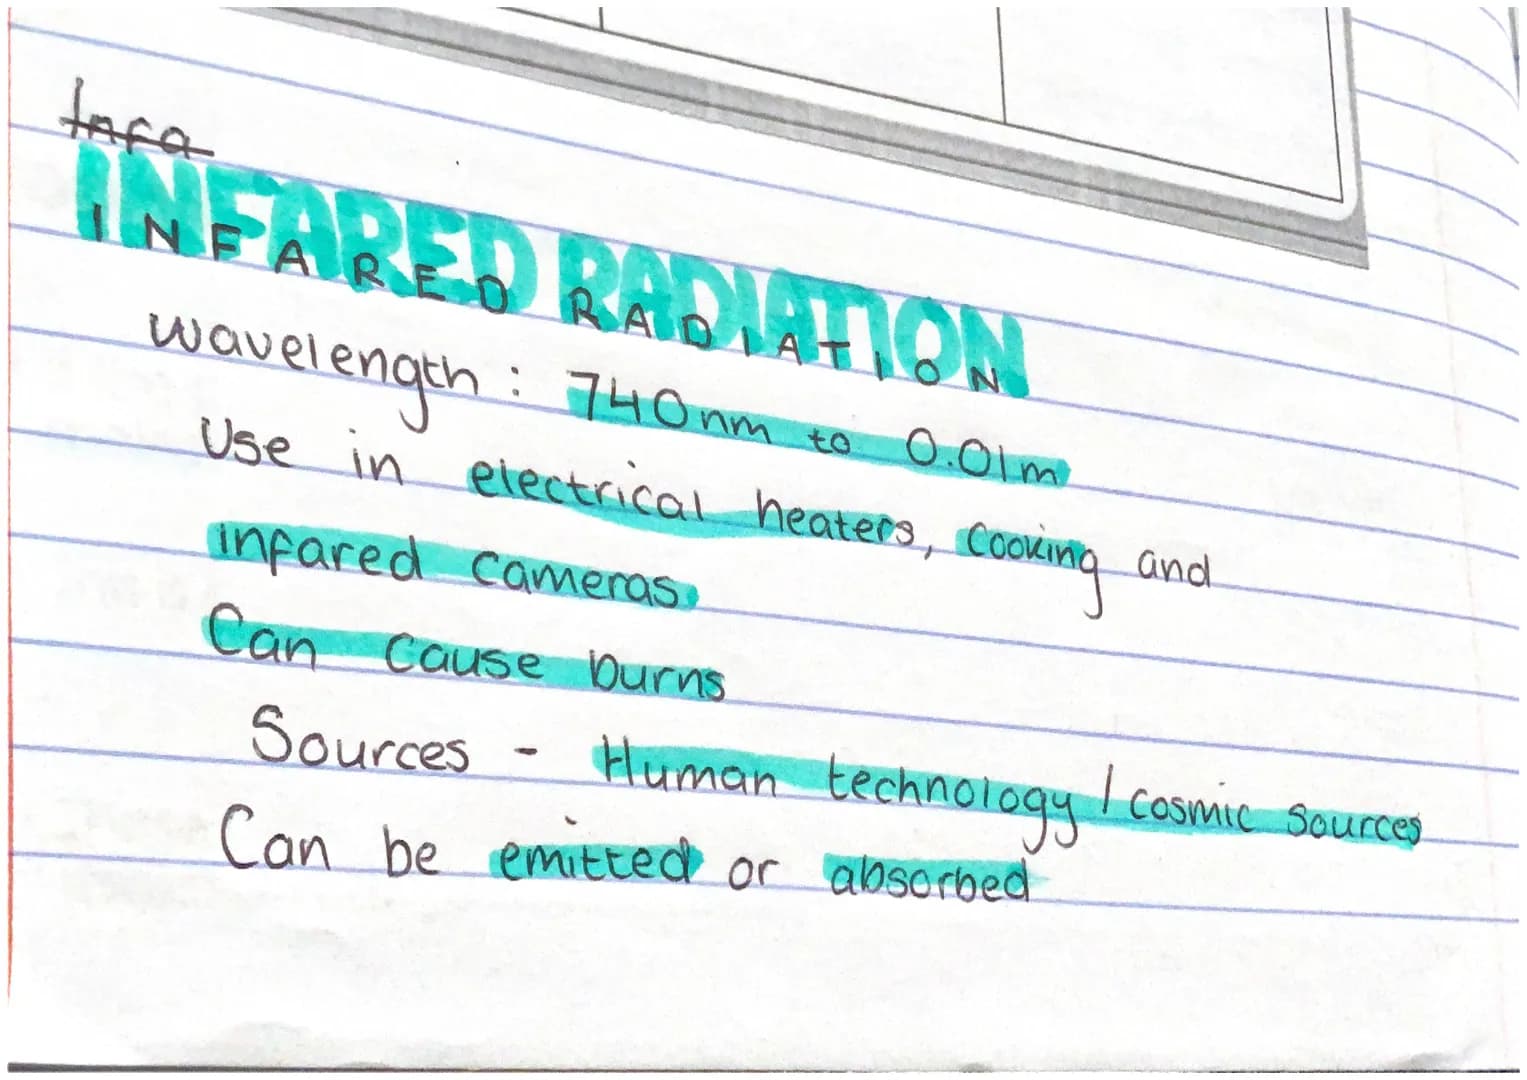 Infa
INFARED RADIATION
INFARED RADIATION
wavelength: 740nm to 0.01m
Use in electrical heaters, cooking and
infared cameras.
Can cause burns
Sources - Human technology / cosmic sources
Can be emitted or absorbed